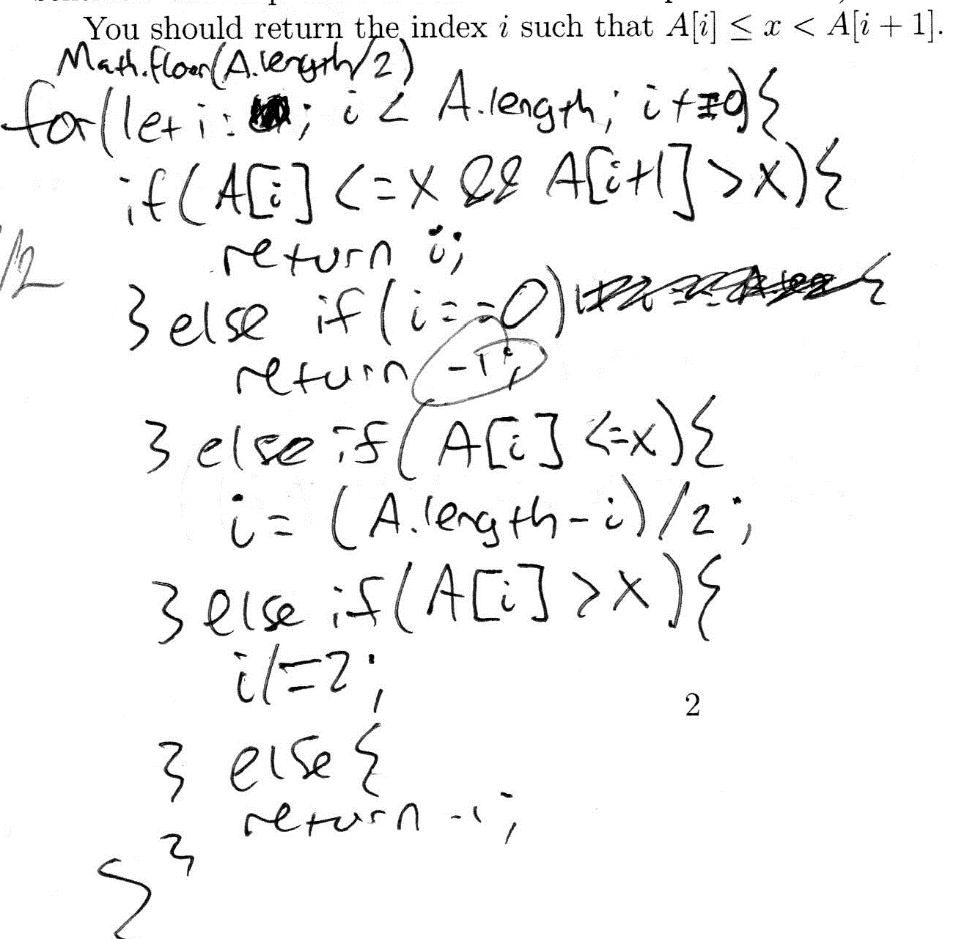 You should return the index i such that A[i] ≤ x < A[i + 1].
Math.floor(A.length/2)
for(let i: ; i < A.length; i+=0){
if(A[i] <= x && A[i+1] > x){
return i;
/2
} else if(i==0) {
return -1;
} else if(A[i] <=x){
i = (A.length-i)/2;
} else if(A[i] > x){
i/=2;
2
} else {
return -1;
}
}